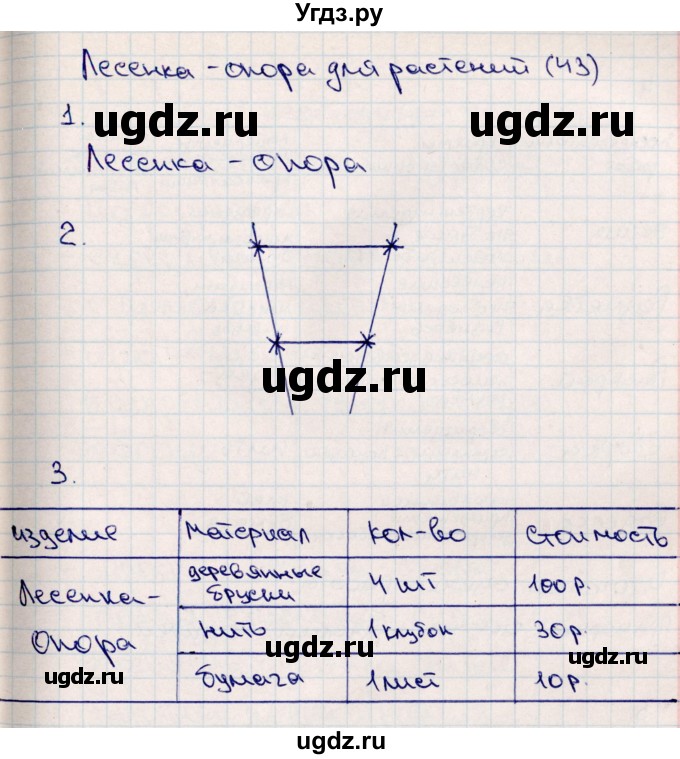 Угдз.ру
Лесенка - опора для растений (43)
1.
ugdz.ru ugdz.ru
Лесенка - опора
2.
ugdz.ru
3.
изделие материал кол-во стоимость
Лесенка- деревянные бруски 4 шт 100 р.
Опора нить 1 клубок 30 р.
ugdz.ru ugdz.ru
ugdz.ru бумага 1 лист 10 р.
ugdz.ru